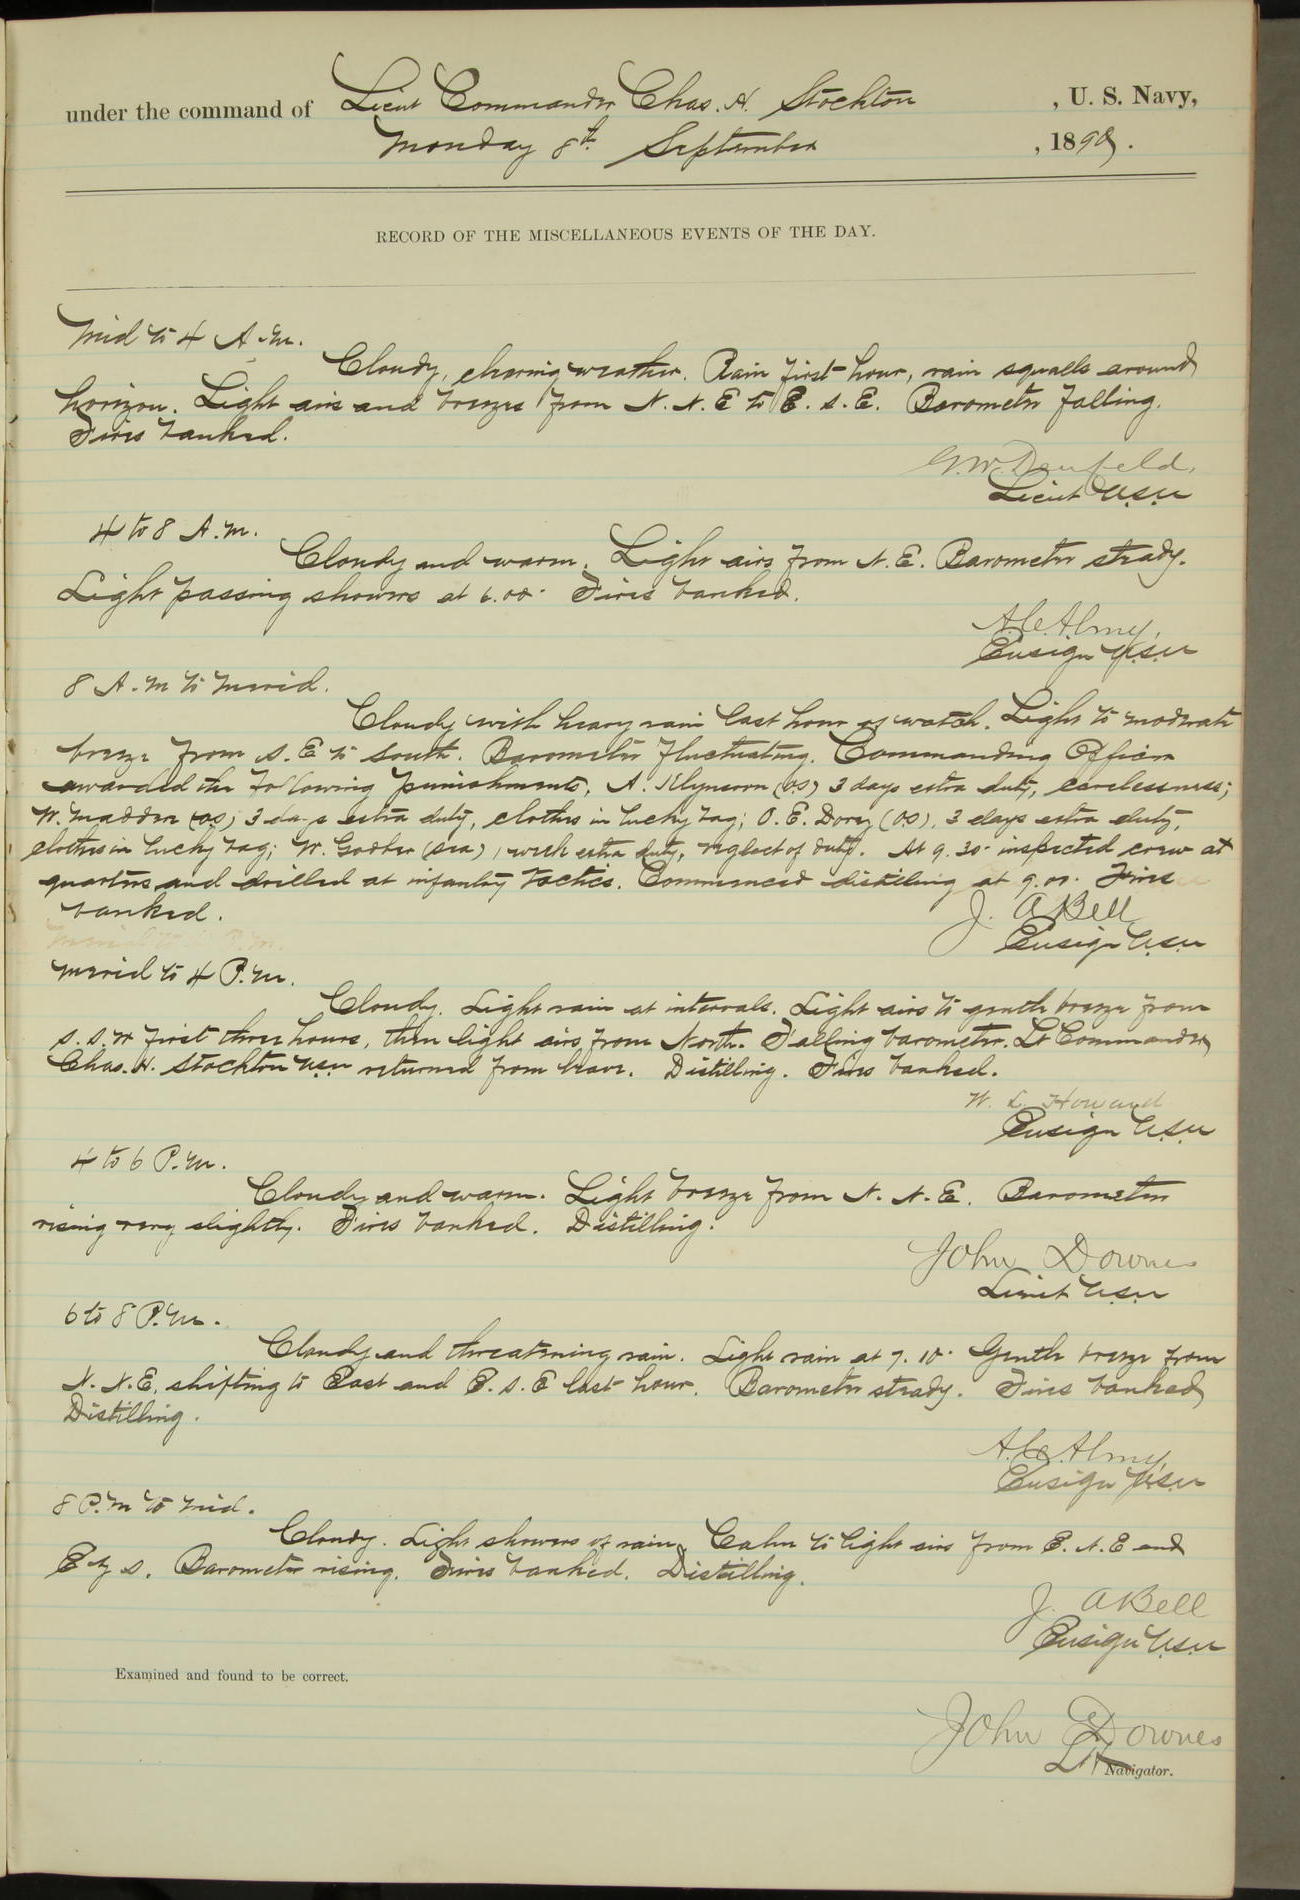 under the command of Lieut Commander Chas. H. Stockton , U. S. Navy,
Monday 8th September , 1890.
RECORD OF THE MISCELLANEOUS EVENTS OF THE DAY.
Mid to 4 A.M.
Cloudy, clearing weather. Rain first hour, rain squalls around
horizon. Light airs and breezes from N. N. E to E. S. E. Barometer falling.
Fires banked.
G.W. Denfeld,
Lieut U.S.N
4 to 8 A.M.
Cloudy and warm. Light airs from N. E. Barometer steady.
Light passing showers at 6.00. Fires banked.
A.C. Almy,
Ensign U.S.N
8 A.M to Merid.
Cloudy with heavy rain last hour of watch. Light to moderate
breeze from S. E to South. Barometer fluctuating. Commanding Officer
awarded the following punishments, A. (OS) 3 days extra duty, carelessness;
W. Madden (OS) 3 days extra duty, clothes in lucky bag; O. E. Dorey (OS), 3 days extra duty,
clothes in lucky bag; W. (Sea) 1 week extra duty, neglect of duty. At 9.30 inspected crew at
quarters and drilled at infantry tactics. Commenced distilling at 9.00. Fires
banked.
J. A Bell
Ensign U.S.N
Merid to 4 P.M.
Merid to 4 P.M.
Cloudy. Light rain at intervals. Light airs to gentle breeze from
S. S. W first three hours, then light airs from North. Falling barometer. Lt Commander
Chas. H. Stockton U.S.N returned from leave. Distilling. Fires banked.
W. L. Howard
Ensign U.S.N
4 to 6 P.M.
Cloudy and warm. Light breeze from N. N. E. Barometer
rising very slightly. Fires banked. Distilling.
John Downes
Lieut U.S.N
6 to 8 P.M.
Cloudy and threatening rain. Light rain at 7.10. Gentle breeze from
N. N. E. shifting to East and E. S. E last hour. Barometer steady. Fires banked
Distilling.
A.C. Almy,
Ensign U.S.N
8 P.M to Mid.
Cloudy. Light showers of rain. Calm to light airs from E. N. E and
E by S. Barometer rising. Fires banked. Distilling.
J. A Bell
Ensign U.S.N
Examined and found to be correct.
John Downes
Lt Navigator.